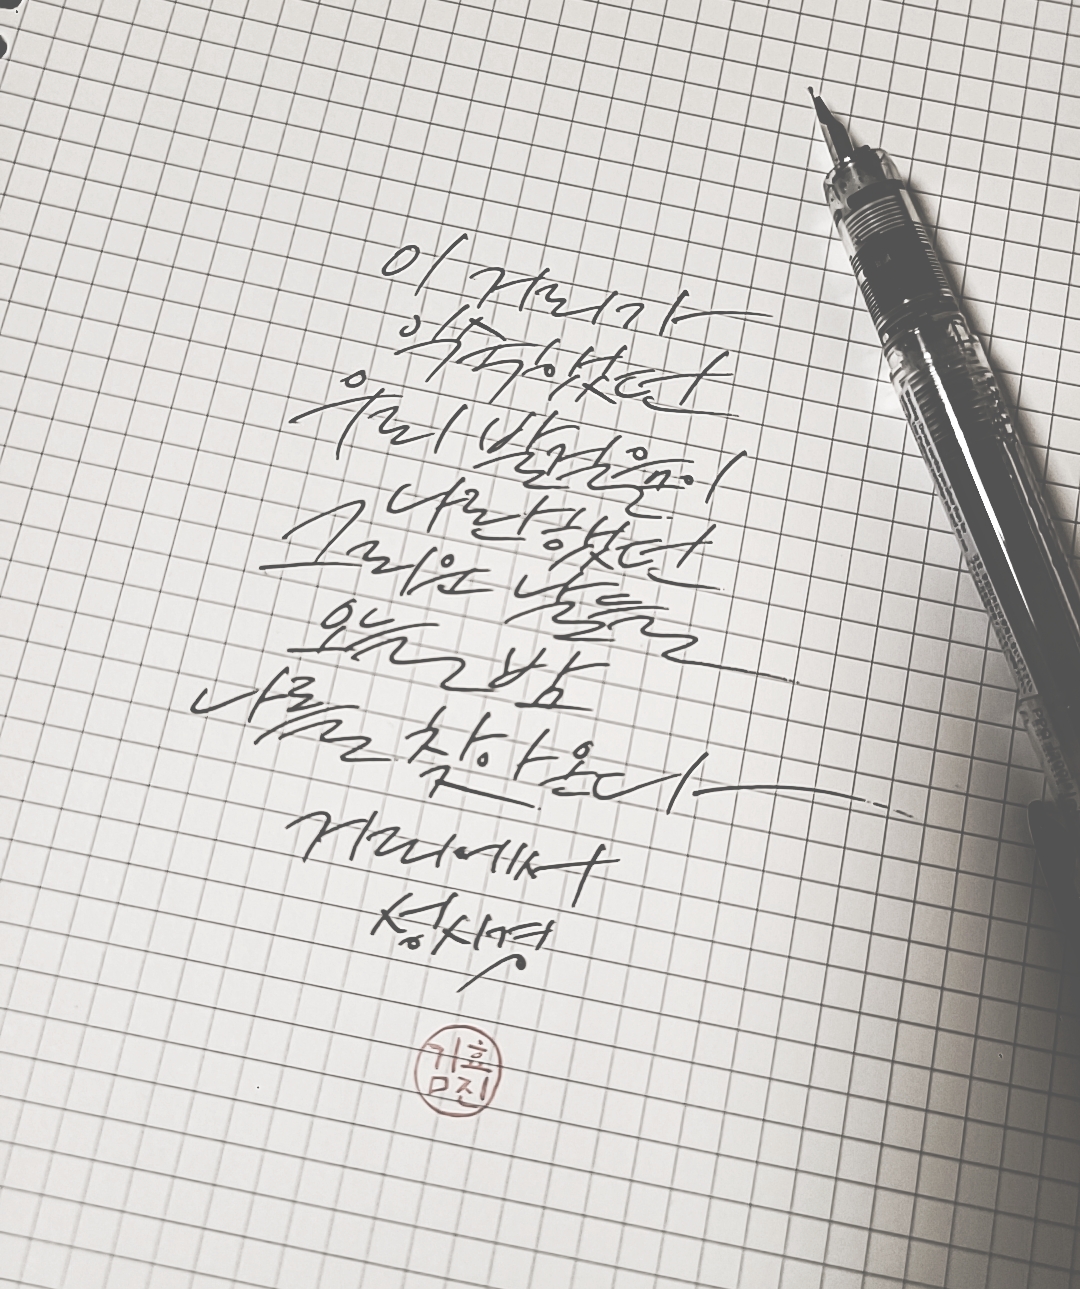 이 거리가
익숙했던
우리 발걸음이
나란했던
그리운 날들
오늘 밤
나를 찾아온다
거리에서
성시경
김효진